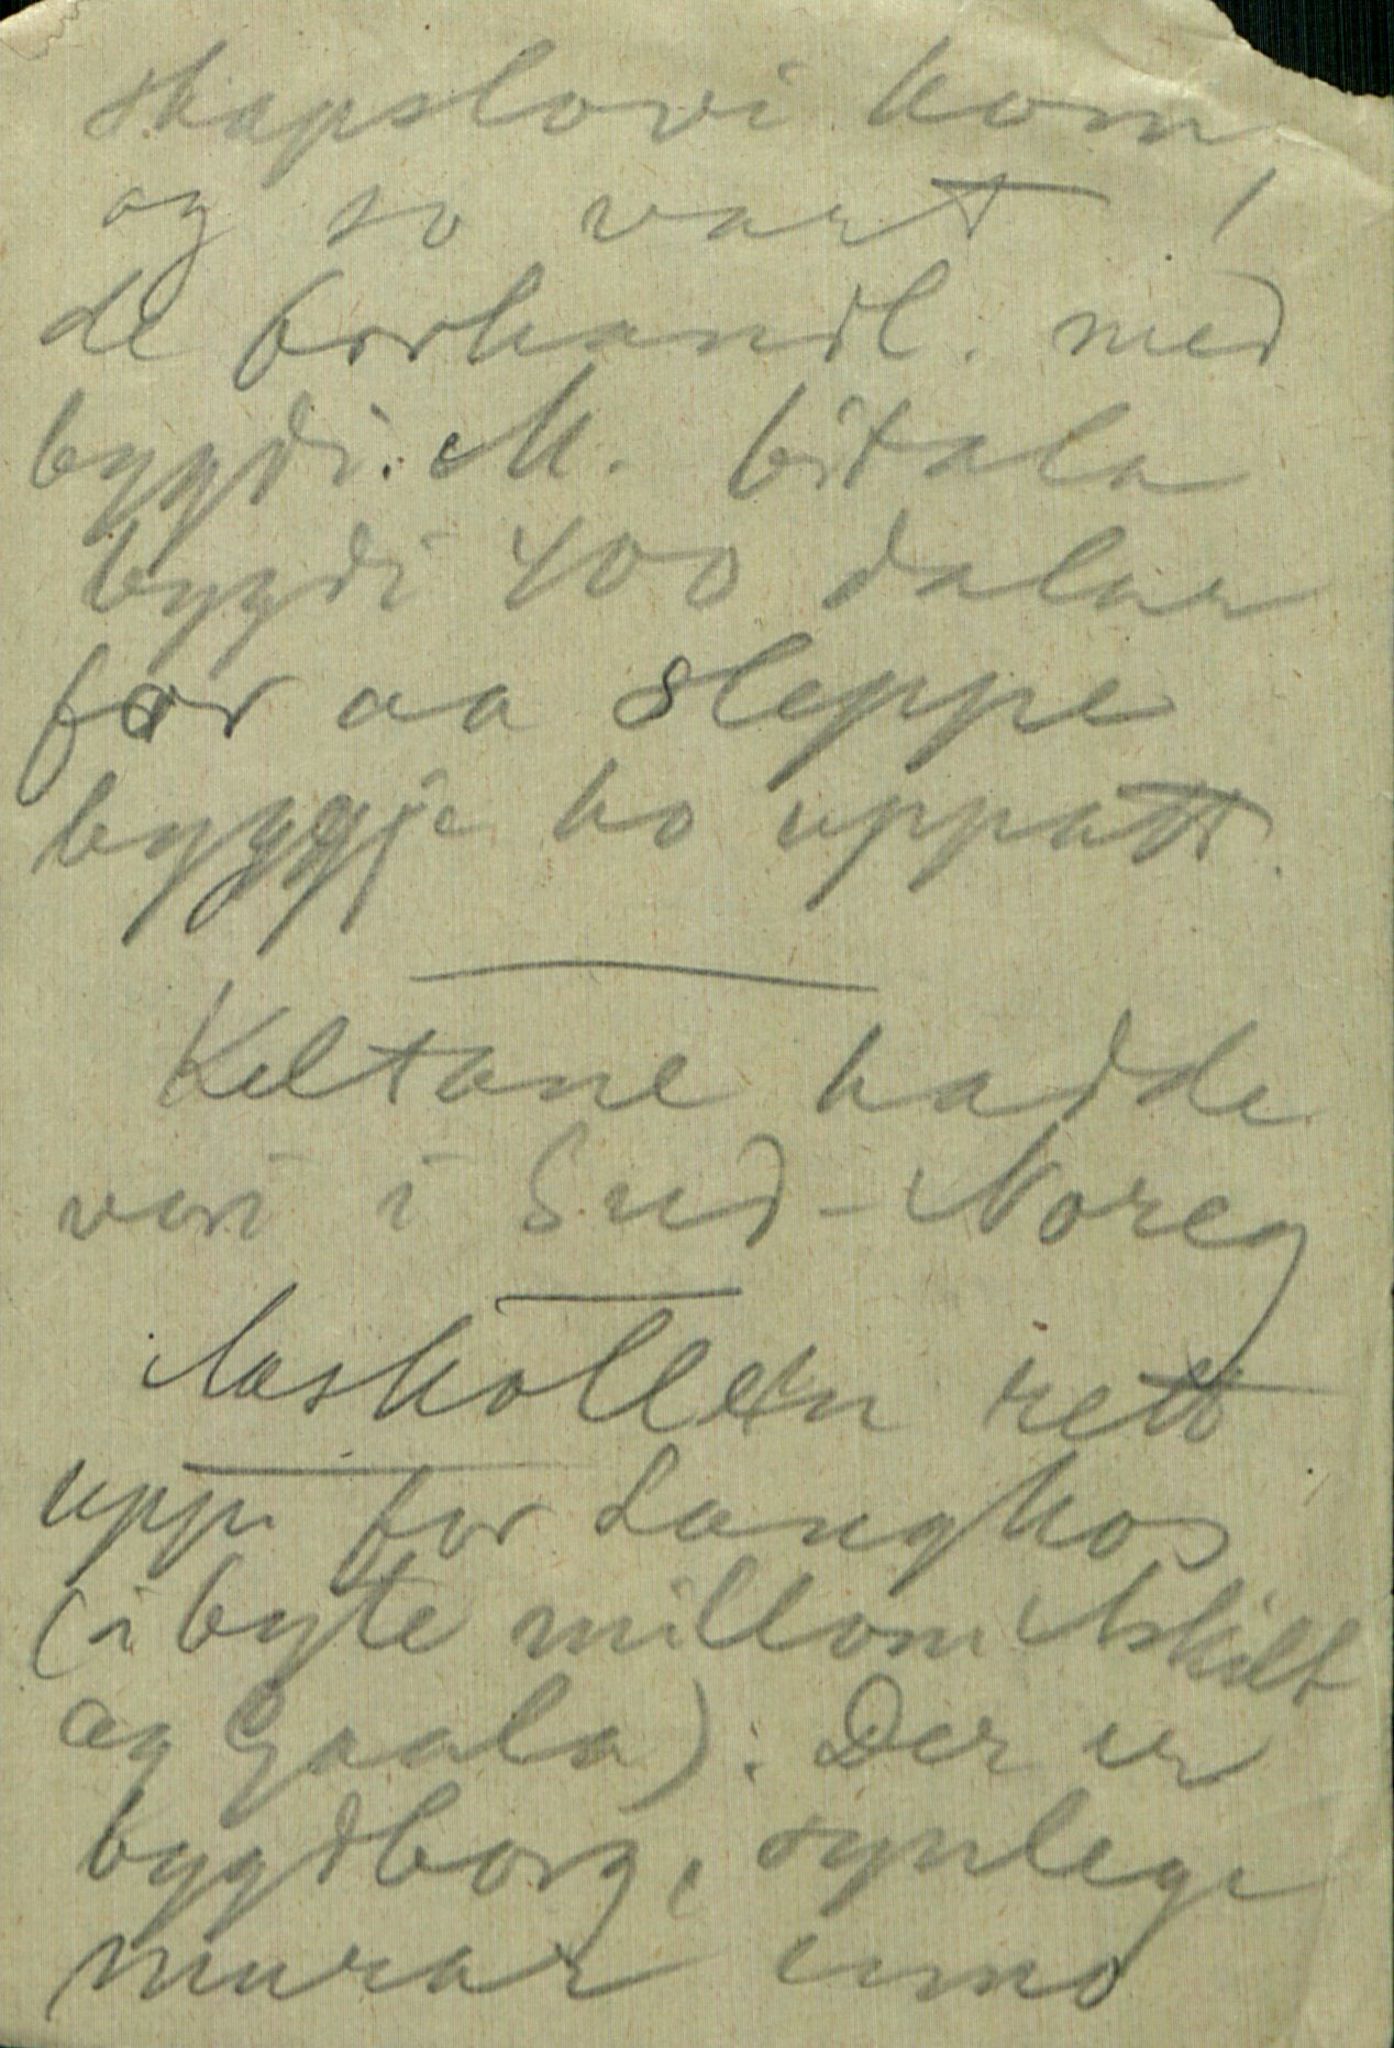 skapslovi kom,
og so vart
de forhandl. med
bygdi. M. bitala
bygdi 400 dalar
for aa sleppe
byggje ho uppatt.
Keltane hadde
vori i Sud-Noreg
Aaskollen rett
uppe for Langkos
(i byte millom
og Gaala). Der er
bygdborg, synlege
murar enno